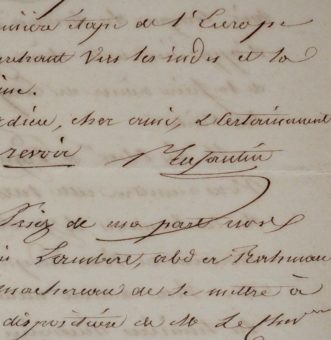 mière étape de l'Europe
marchant vers les indes et la
ine.
dieu, cher ami, & certainement
revoir P. Enfantin
Priez de ma part nos
Lambert, abd er Rahman
machereau de se mettre à
disposition de Mr Le Chever